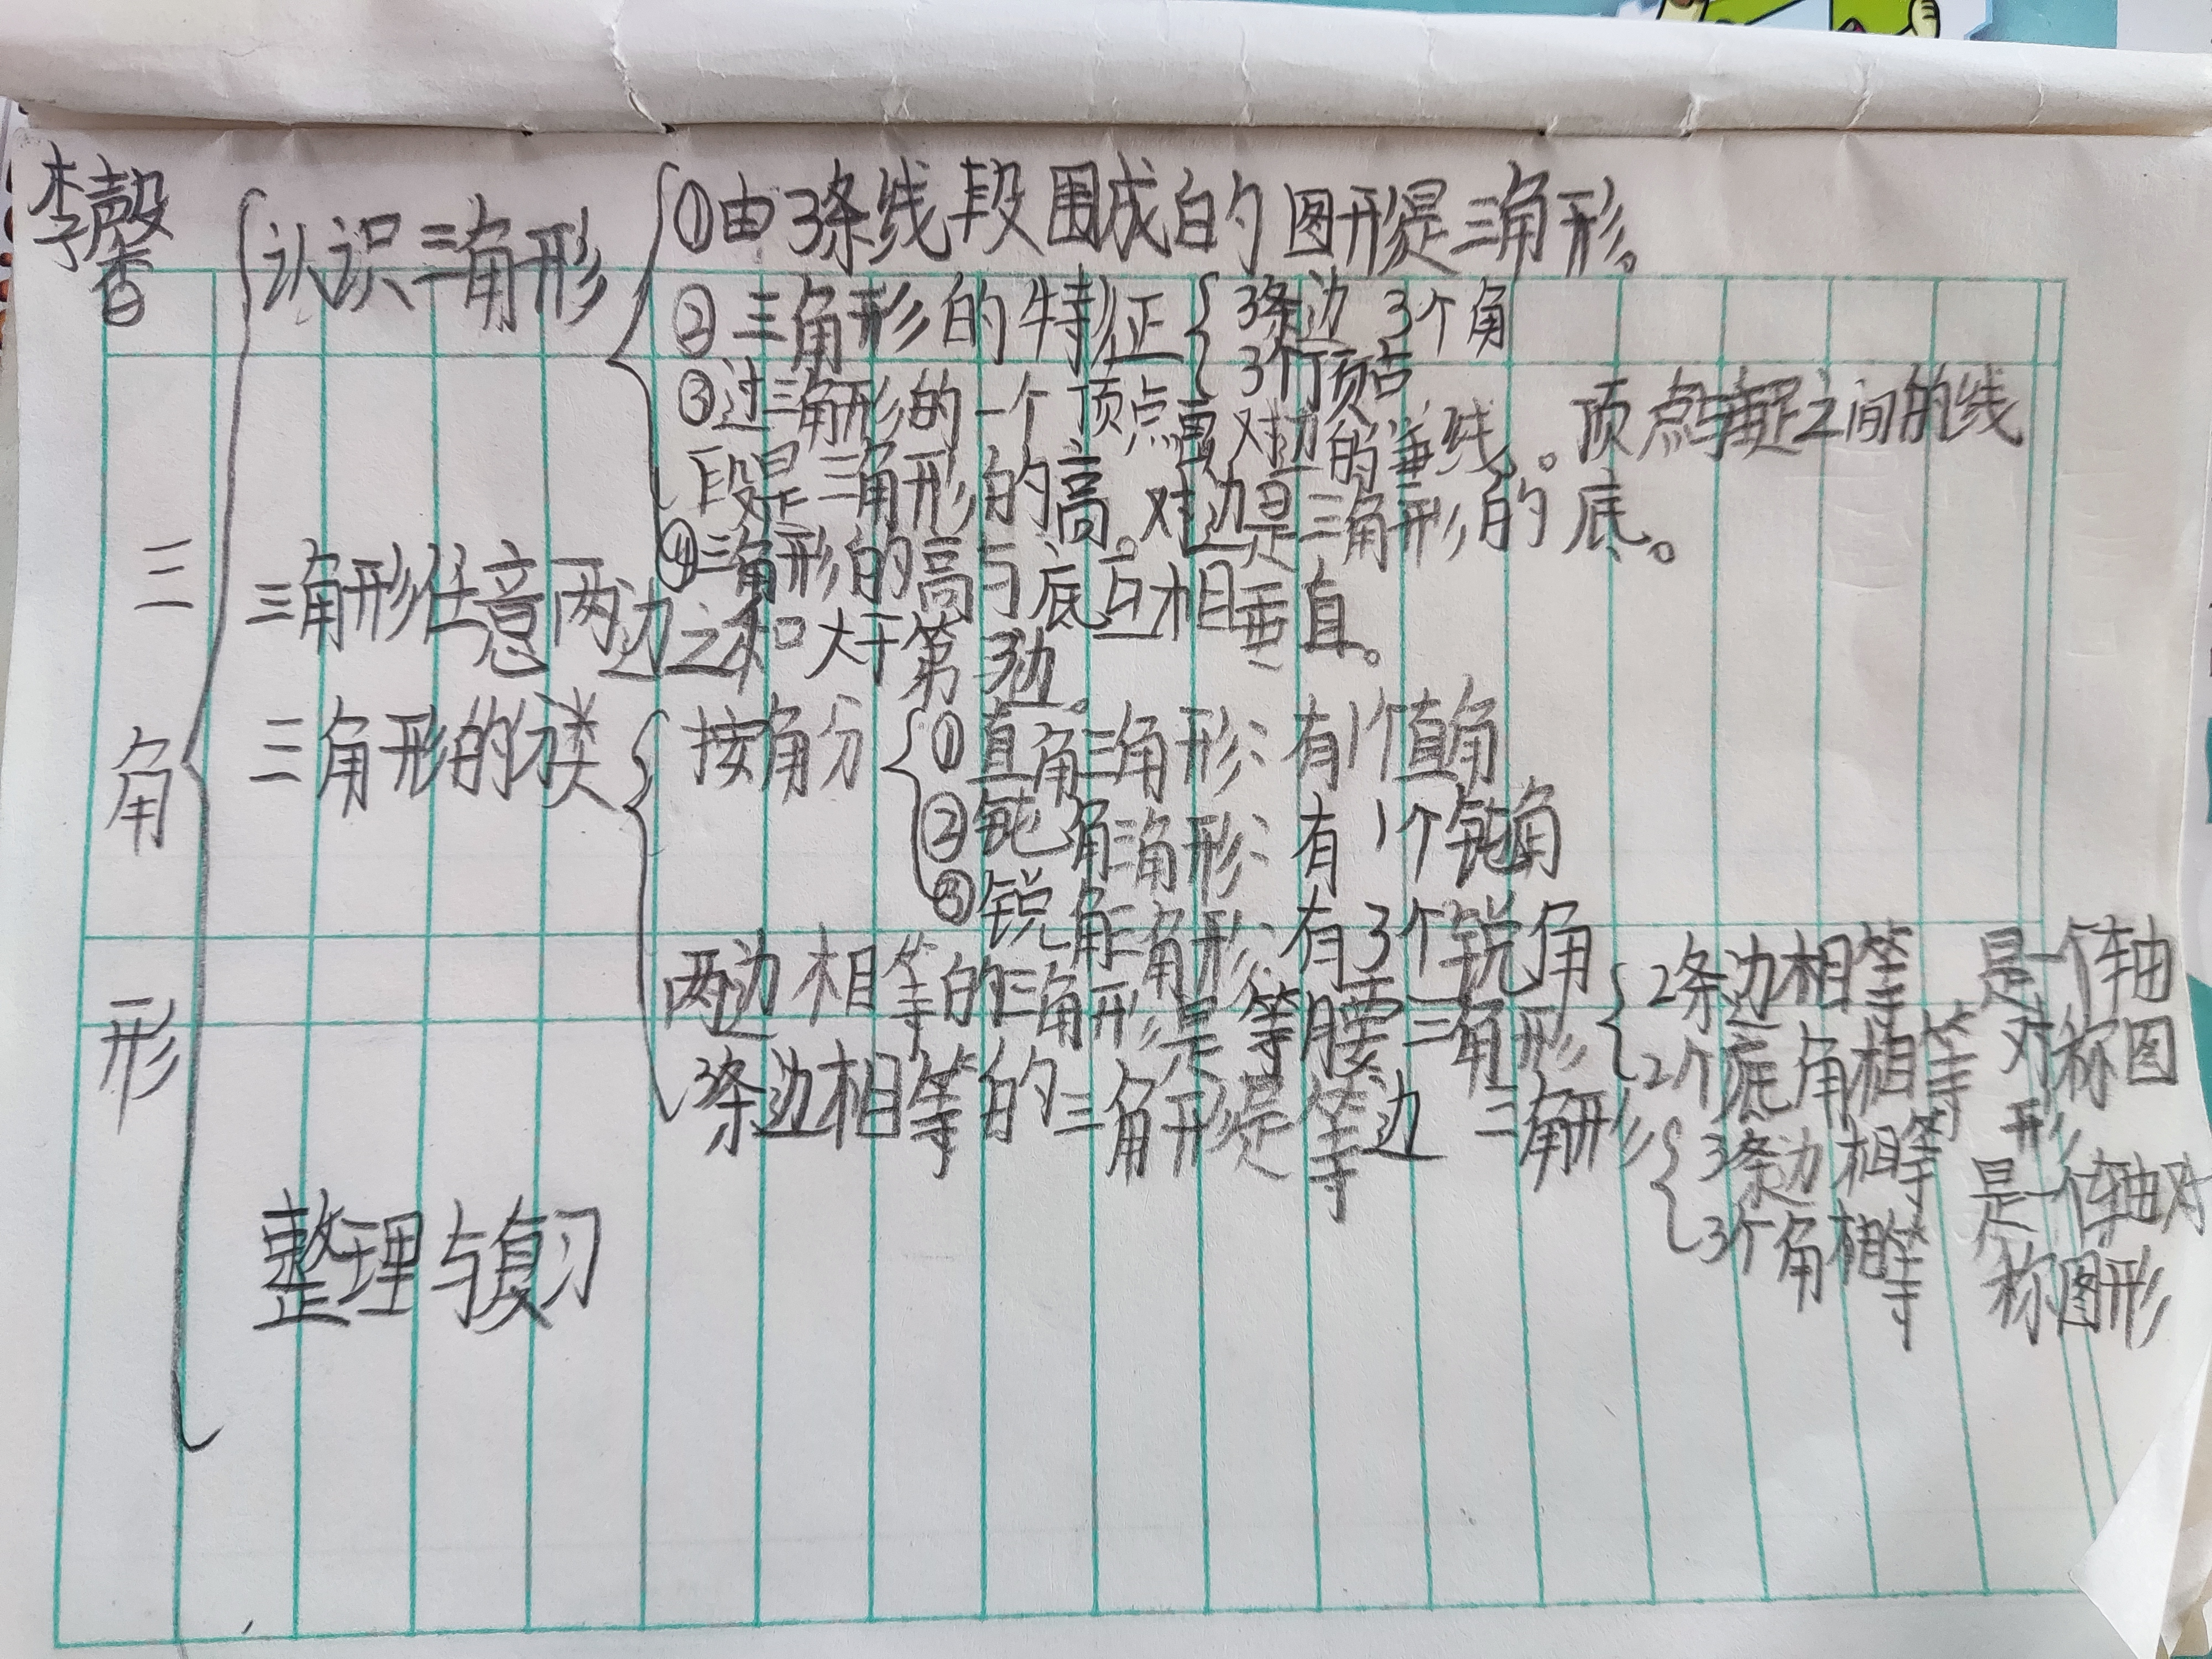 李馨
三
角
形
认识三角形
①由3条线段围成的图形是三角形。
②三角形的特征
3条边 3个角
3个顶点
③过三角形的一个顶点画对边的垂线。顶点与垂足之间的线
段是三角形的高。对边是三角形的底。
④三角形的高与底互相垂直。
三角形任意两边之和大于第3边。
三角形的
按角分
①直角三角形:有1个直角
②钝角三角形:有1个钝角
③锐角三角形:有3个锐角
两边相等的三角形是等腰三角形
2条边相等
2个底角相等
是一个轴
对称图
形
3条边相等的三角形是等边三角形
3条边相等
3个角相等
是一个轴对
称图形
整理与复习